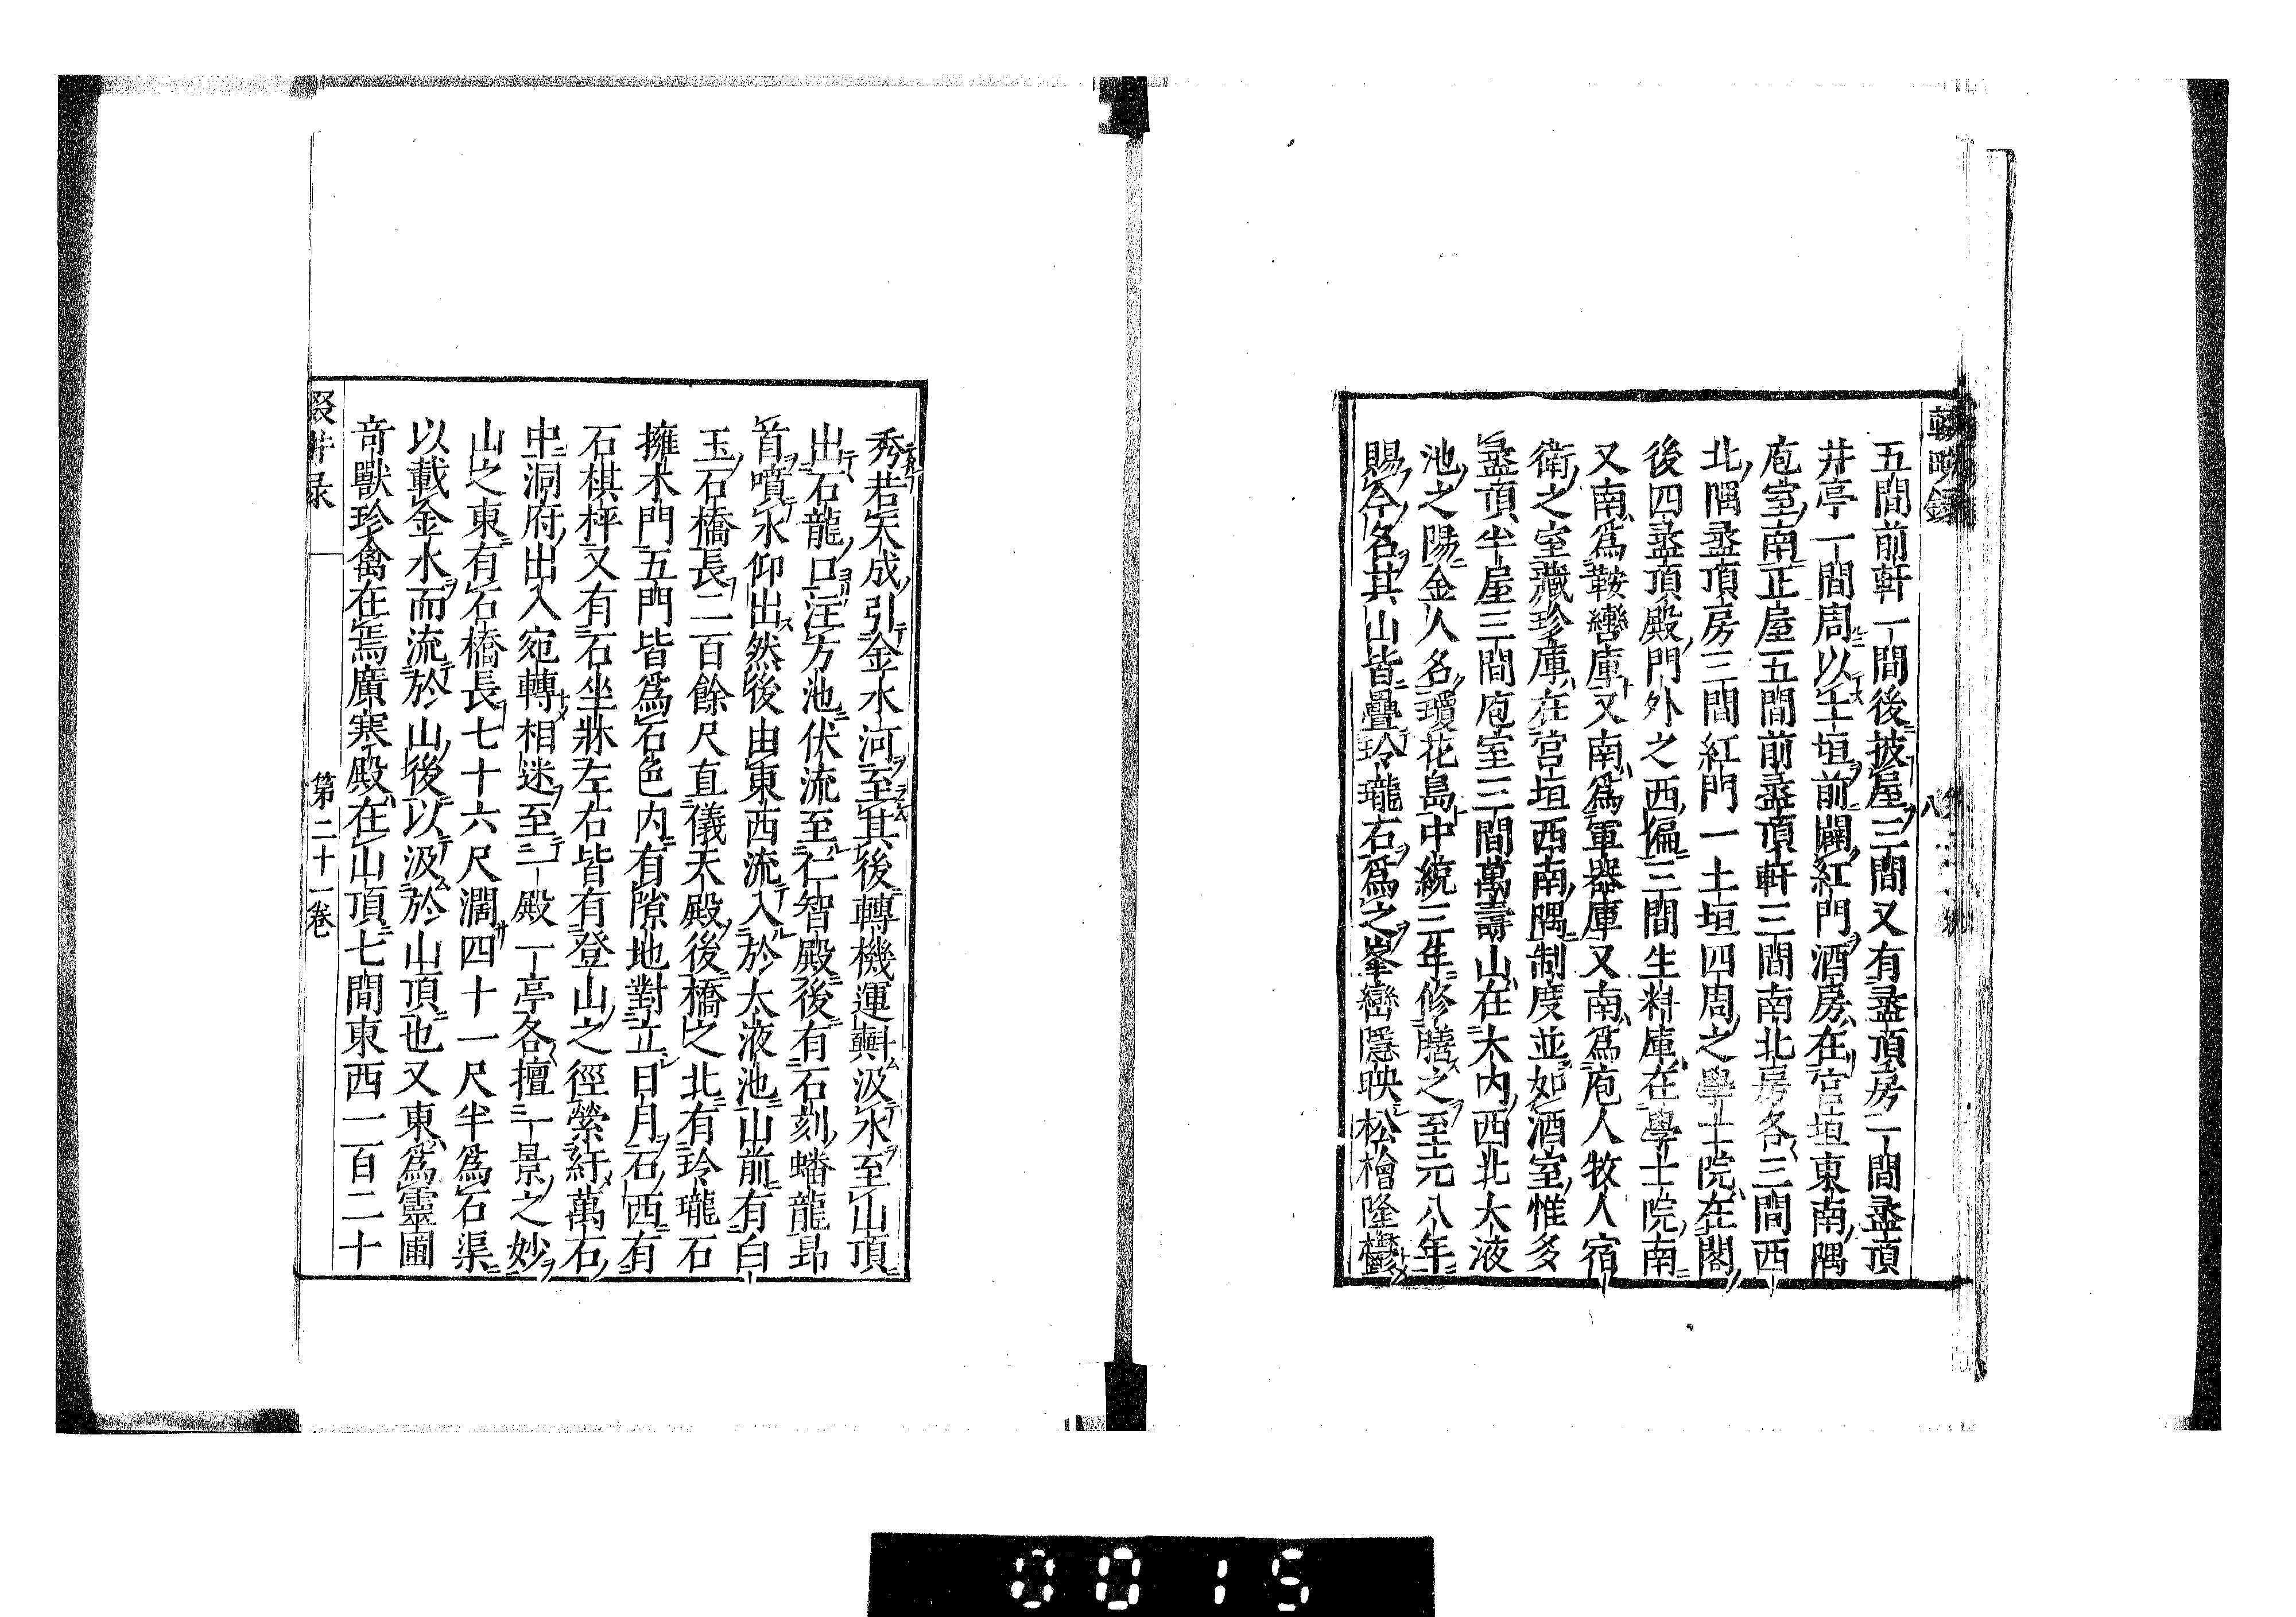 五間前軒一間後披屋三間又有盝頂房一間盝頂
井亭一間周以土垣前闢紅門酒房在宮垣東南隅
庖室南正屋五間前盝頂軒三間南北房各三間西
北隅盝頂房三間紅門一土垣四周之學士院在閣
後四盝頂殿門外之西偏三間生料庫在學士院南
又南爲鞍轡庫又南爲軍器庫又南爲庖人牧人宿
衛之室藏珍庫在宮垣西南隅制度並如酒室惟多
盝頂半屋三間庖室三間萬壽山在大内西北大液
池之陽金人名瓊花島中統三年修繕之至元八年
賜今名其山皆疊玲瓏石爲之峯巒隱映松檜隆鬱
秀若天成引金水河至其後轉機運㪺汲水至山頂
出石龍口注方池伏流至仁智殿後有石刻蟠龍昻
首噴水仰出然後由東西流入於太液池山前有白
玉石橋長二百餘尺直儀天殿後橋之北有玲瓏石
擁木門五門皆爲石色内有隙地對立日月石西有
石棋枰又有石坐牀左右皆有登山之徑縈紆萬石
中洞府出入宛轉相迷至一殿一亭各擅一景之妙
山之東有石橋長七十六尺濶四十一尺半爲石渠
以載金水而流於山後以汲於山頂也又東爲靈圃
奇獸珍禽在焉廣寒殿在山頂七間東西一百二十
第二十一卷
0015